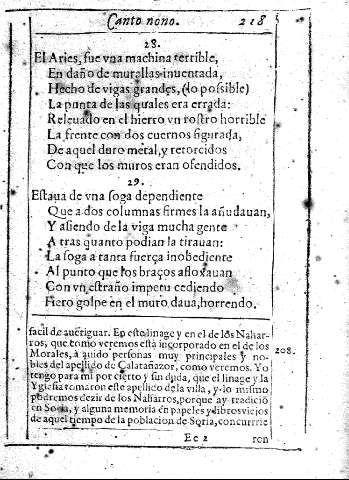 Canto nono. 218
28.
El Aries, fue vna machina terrible,
En daño de murallas inuentada,
Hecho de vigas grandes, (lo possible)
La punta de las quales era errada:
Releuado en el hierro vn rostro horrible
La frente con dos cuernos figurada,
De aquel duro metal, y retorcidos
Con que los muros eran ofendidos.
29.
Estaua de vna soga dependiente
Que a dos columnas firmes la añudauan,
Y asiendo de la viga mucha gente
A tras quanto podian la tirauan:
La soga a tanta fuerça inobediente
Al punto que los braços afloxauan
Con vn estraño impetu cediendo
Fiero golpe en el muro daua, horrendo.
facil de aueriguar. En este linage y en el de los Naharros, que como veremos està incorporado en el de los
Morales, à auido personas muy principales y nobles del apellido de Calatañazor, como veremos. Yo
tengo para mi por cierto y sin duda, que el linage y la
Yglesia tomaron este apellido de la villa, y lo mismo
podremos dezir de los Naharros, porque ay tradiciõ
en Soria, y alguna memoria en papeles y libros viejos
de aquel tiempo de la poblacion de Soria, concurrrie
208.
Ee 2 ron